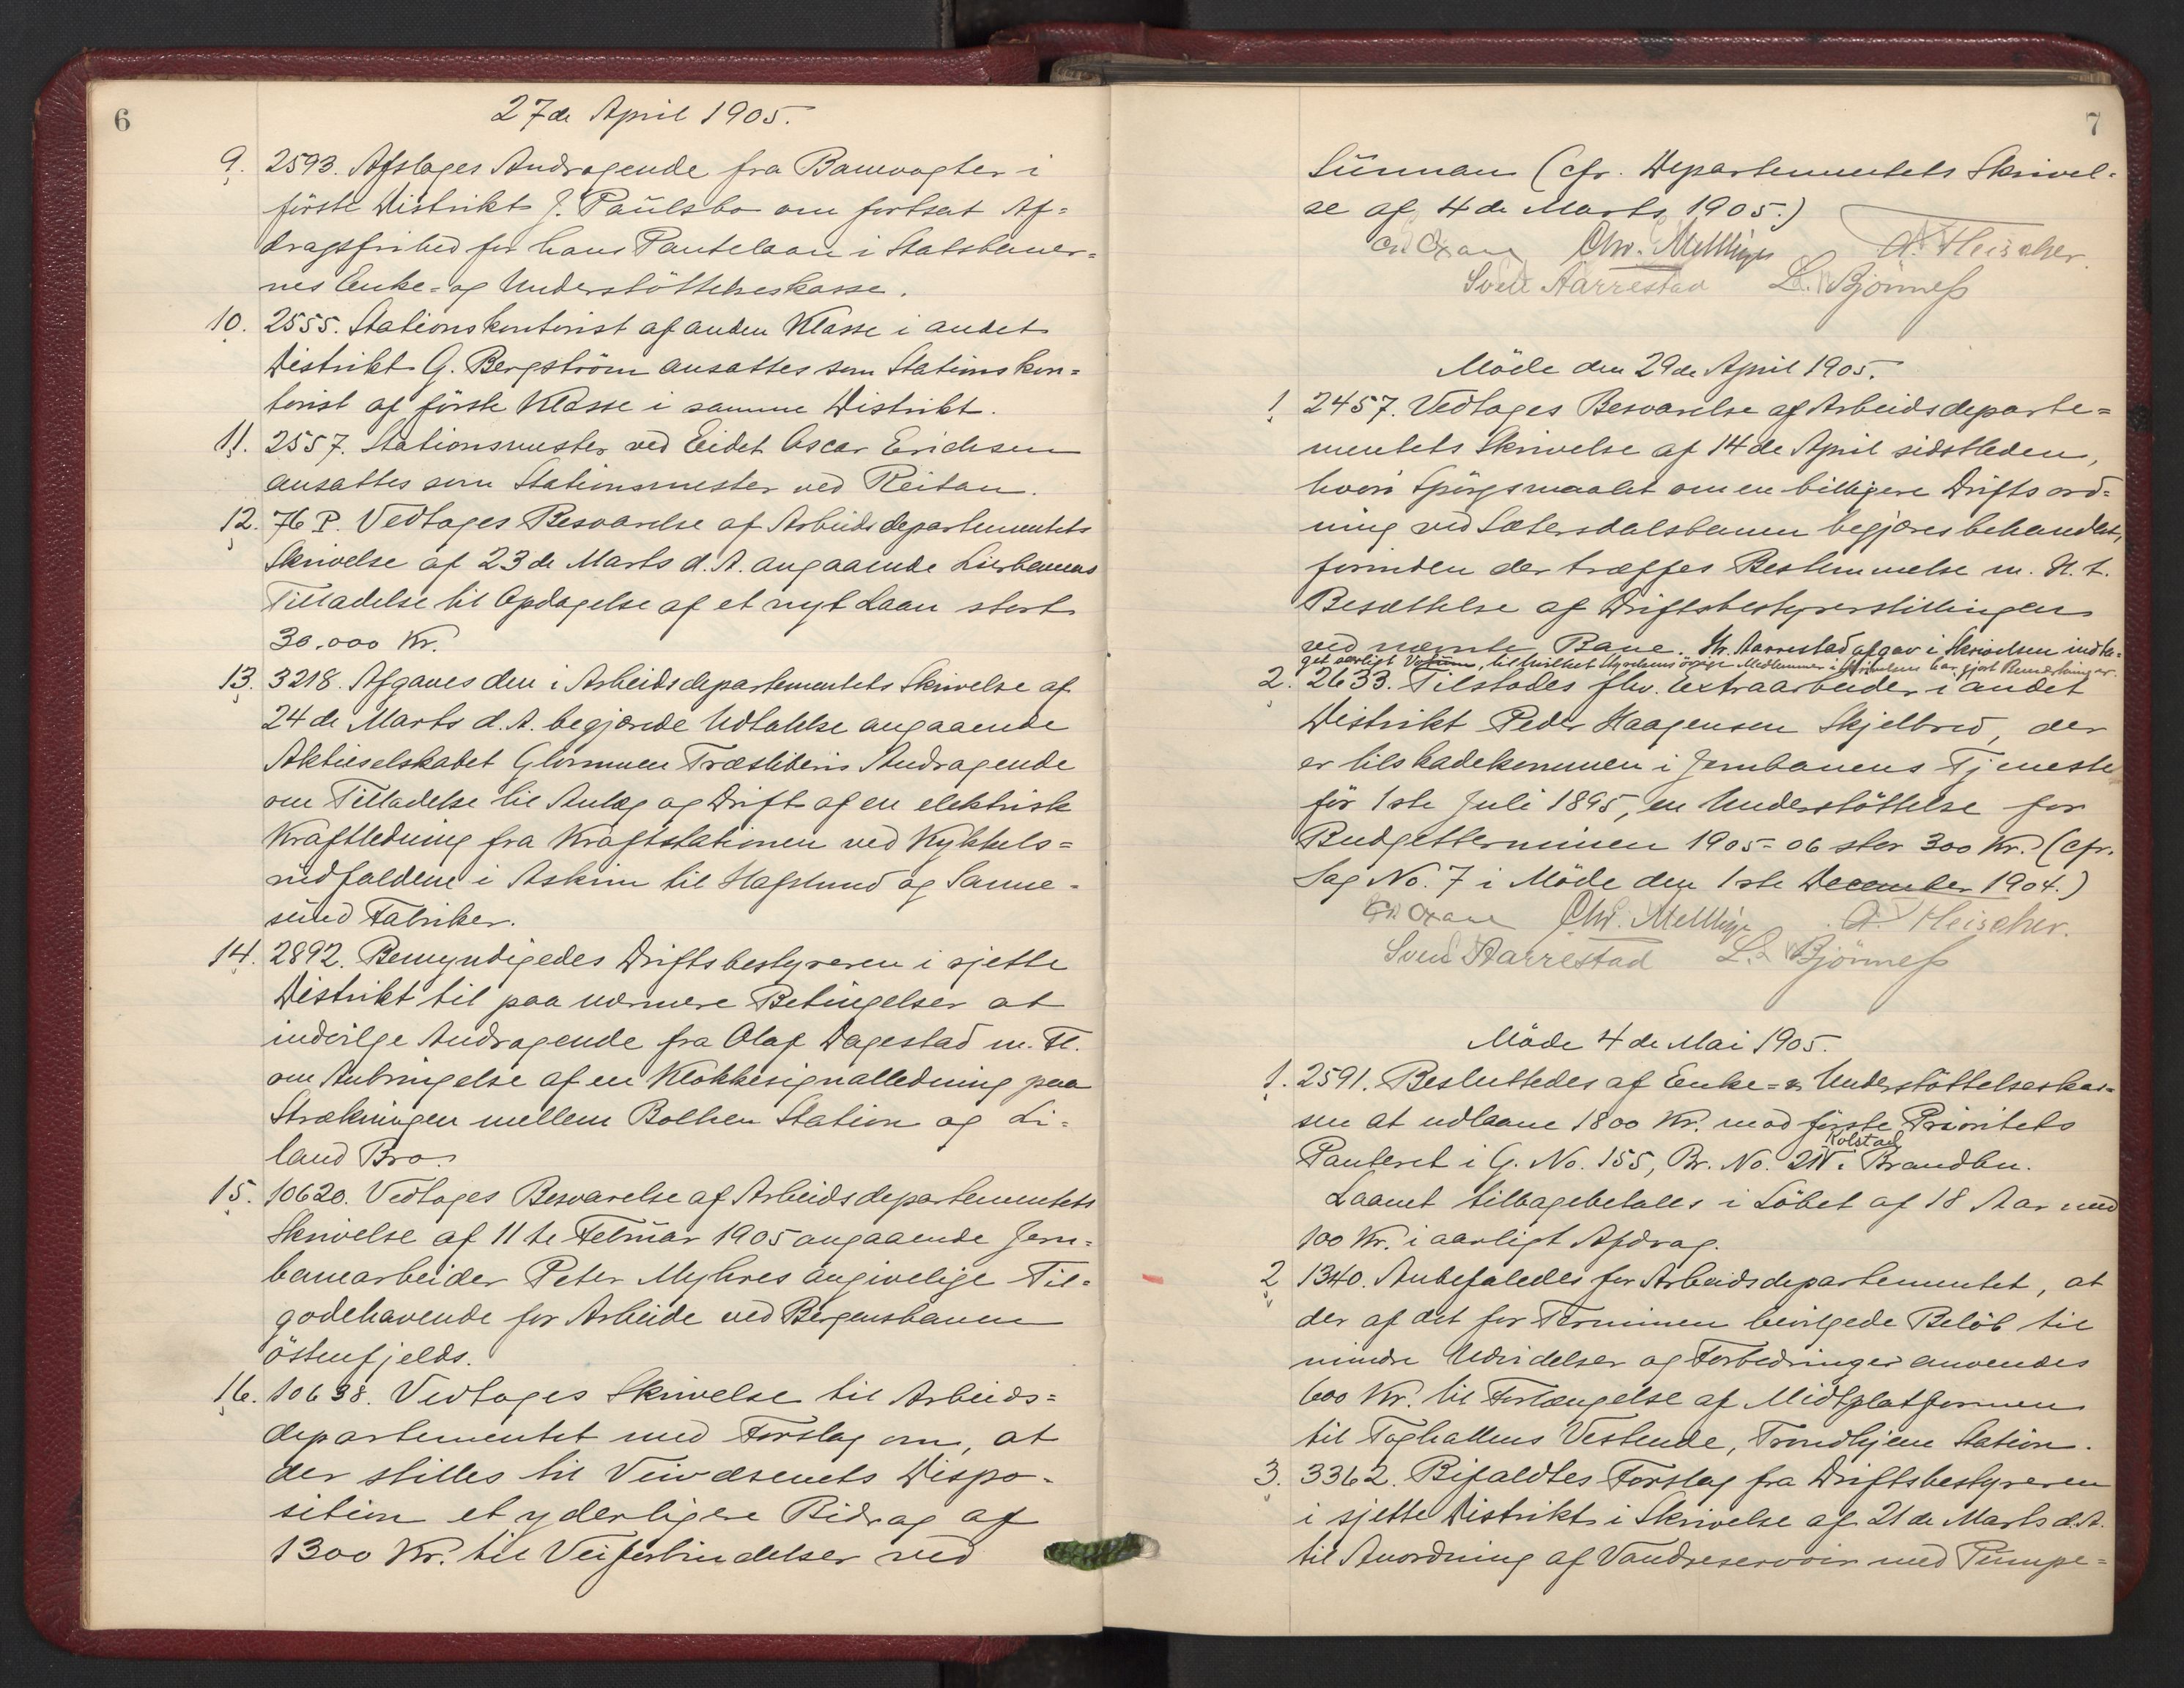 6
27de April 1905.
9. 2593. Afslages Andragende fra Banevogter i
förste Distrikt J. Paulsbo om fortsat Af=
dragsfrihed for hans Pantelaan i Statsbaner=
nes Enke- og Understöttelseskasse.
10. 2555. Stationskontorist af anden Klasse i andet
Distrikt G. Bergström ansattes som Stationskon=
torist af förste Klasse i samme Distrikt.
11. 2557. Stationsmester ved Eidet Oscar Erichsen
ansattes som Stationsmester ved Reitan.
12. 76 P. Vedtoges Besvarelse af Arbeidsdepartementets
Skrivelse af 23de Marts d. A. angaaende Lierbanens
Tilladelse til Opdagelse af et nyt Laan stort
30.000 Kr.
13. 3218. Afgaves den i Arbeidsdepartementets Skrivelse af
24de Marts d. A. begjærede Udtalelse angaaende
Aktieselskabet Glommen Træsliberis Andragende
om Tilladelse til Anlæg og Drift af en elektrisk
Kraftledning fra Kraftstationen ved Kykkels=
rudfaldene i Askim til Hafslund og Sanne=
sund Fabriker.
14. 2892. Bemyndigedes Driftsbestyreren i sjette
Distrikt til paa nærmere Betingelser at
indvilge Andragende fra Olaf Dagestad m. Fl.
om Anbringelse af en Klokkesignalledning paa
Strækningen mellem Bolken Station og Li=
land Bro.
15. 10620. Vedtoges Besvarelse af Arbeidsdepartementets
Skrivelse af 11te Februar 1905 angaaende Jern=
banearbeider Peter Myhres angivelige Til=
godehavende for Arbeide ved Bergensbanen
östenfjelds.
16. 10638. Vedtoges Skrivelse til Arbeids=
departementet med Forslag om, at
der stilles til Veivæsenets Dispo=
sition et yderligere Bidrag af
1300 Kr. til Veiforbindelser ved
7
Sünnan (cfr. Departementets Skrivel=
se af 4de Marts 1905.)
Chr. Mellbye A. Fleischer.
Sven Aarrestad L. Bjönness
Möde den 29de April 1905.
1. 2457. Vedtoges Besvarelse af Arbeidsdeparte=
mentets Skrivelse af 14de April sidstleden,
hvori Spörgsmaalet om en billigere Driftsord=
ning ved Sætersdalsbanen begjæres behandlet,
forinden der træffes Bestemmelse m. H. t.
Besættelse af Driftsbestyrerstillingen
ved nævnte Bane. Hr. Aarrestad afgav i Skrivelsen indta=
get særligt Votum, til hvilket Styrelsens övrige Medlemmer i Skrivelsen har gjort Bemærkninger.
2. 2633. Tilstodes fhv. Extraarbeider i andet
Distrikt Peder Haagensen Skjelbred, der
er tilskadekommen i Jernbanens Tjeneste
för 1ste Juli 1895, en Understöttelse for
Budgetterminen 1905-06 stor 300 Kr. (cfr.
Sag No. 7 i Möde den 1ste December 1904.)
Chr. Mellbye A. Fleischer.
Sven Aarrestad L. Bjönness
Möde 4de Mai 1905.
1. 2591. Besluttedes af Enke- & Understöttelseskas=
sen at udlaane 1800 Kr. mod förste Prioritets
Kolstad
Panteret i G. No. 155, Br. No. 21 i Brandbu.
Laanet tilbagebetales i Löbet af 18 Aar med
100 Kr. i aarligt Afdrag.
2 1340. Anbefaledes for Arbeidsdepartementet, at
der af det for Terminen bevilgede Belöb til
mindre Udvidelser og Forbedringer anvendes
600 Kr. til Forlængelse af Midtplatformen
til Toghallens Vestende, Trondhjem Station.
3. 3362. Bifaldtes Forslag fra Driftsbestyreren
i sjette Distrikt i Skrivelse af 21de Marts d. A.
til Anordning af Vandreservoir med Pumpe=